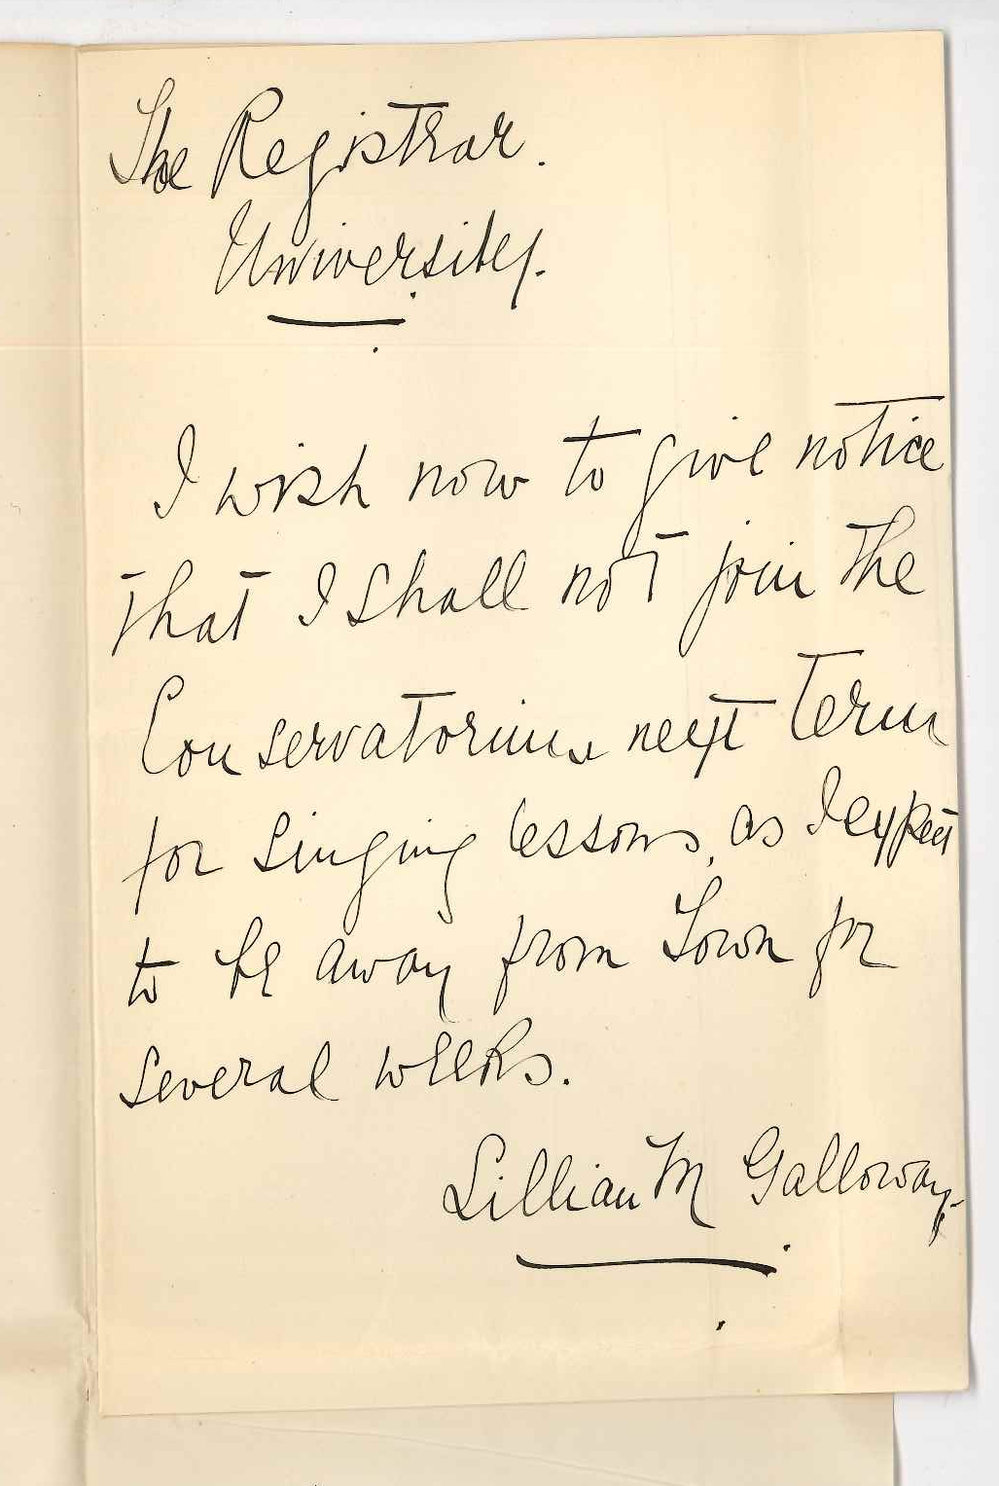 The Registrar.
University.
I wish now to give notice
that I shall not join the
Conservatorium next term
for singing lessons, as I expect
to be away from Town for
several weeks.
Lillian M Galloway.